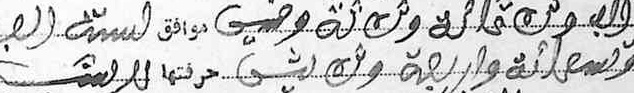 الف وثلاثمائة وثلاثة وخمسين موافق لسنة الف
وتسعمائة واربعة وثلاثين حرفتها